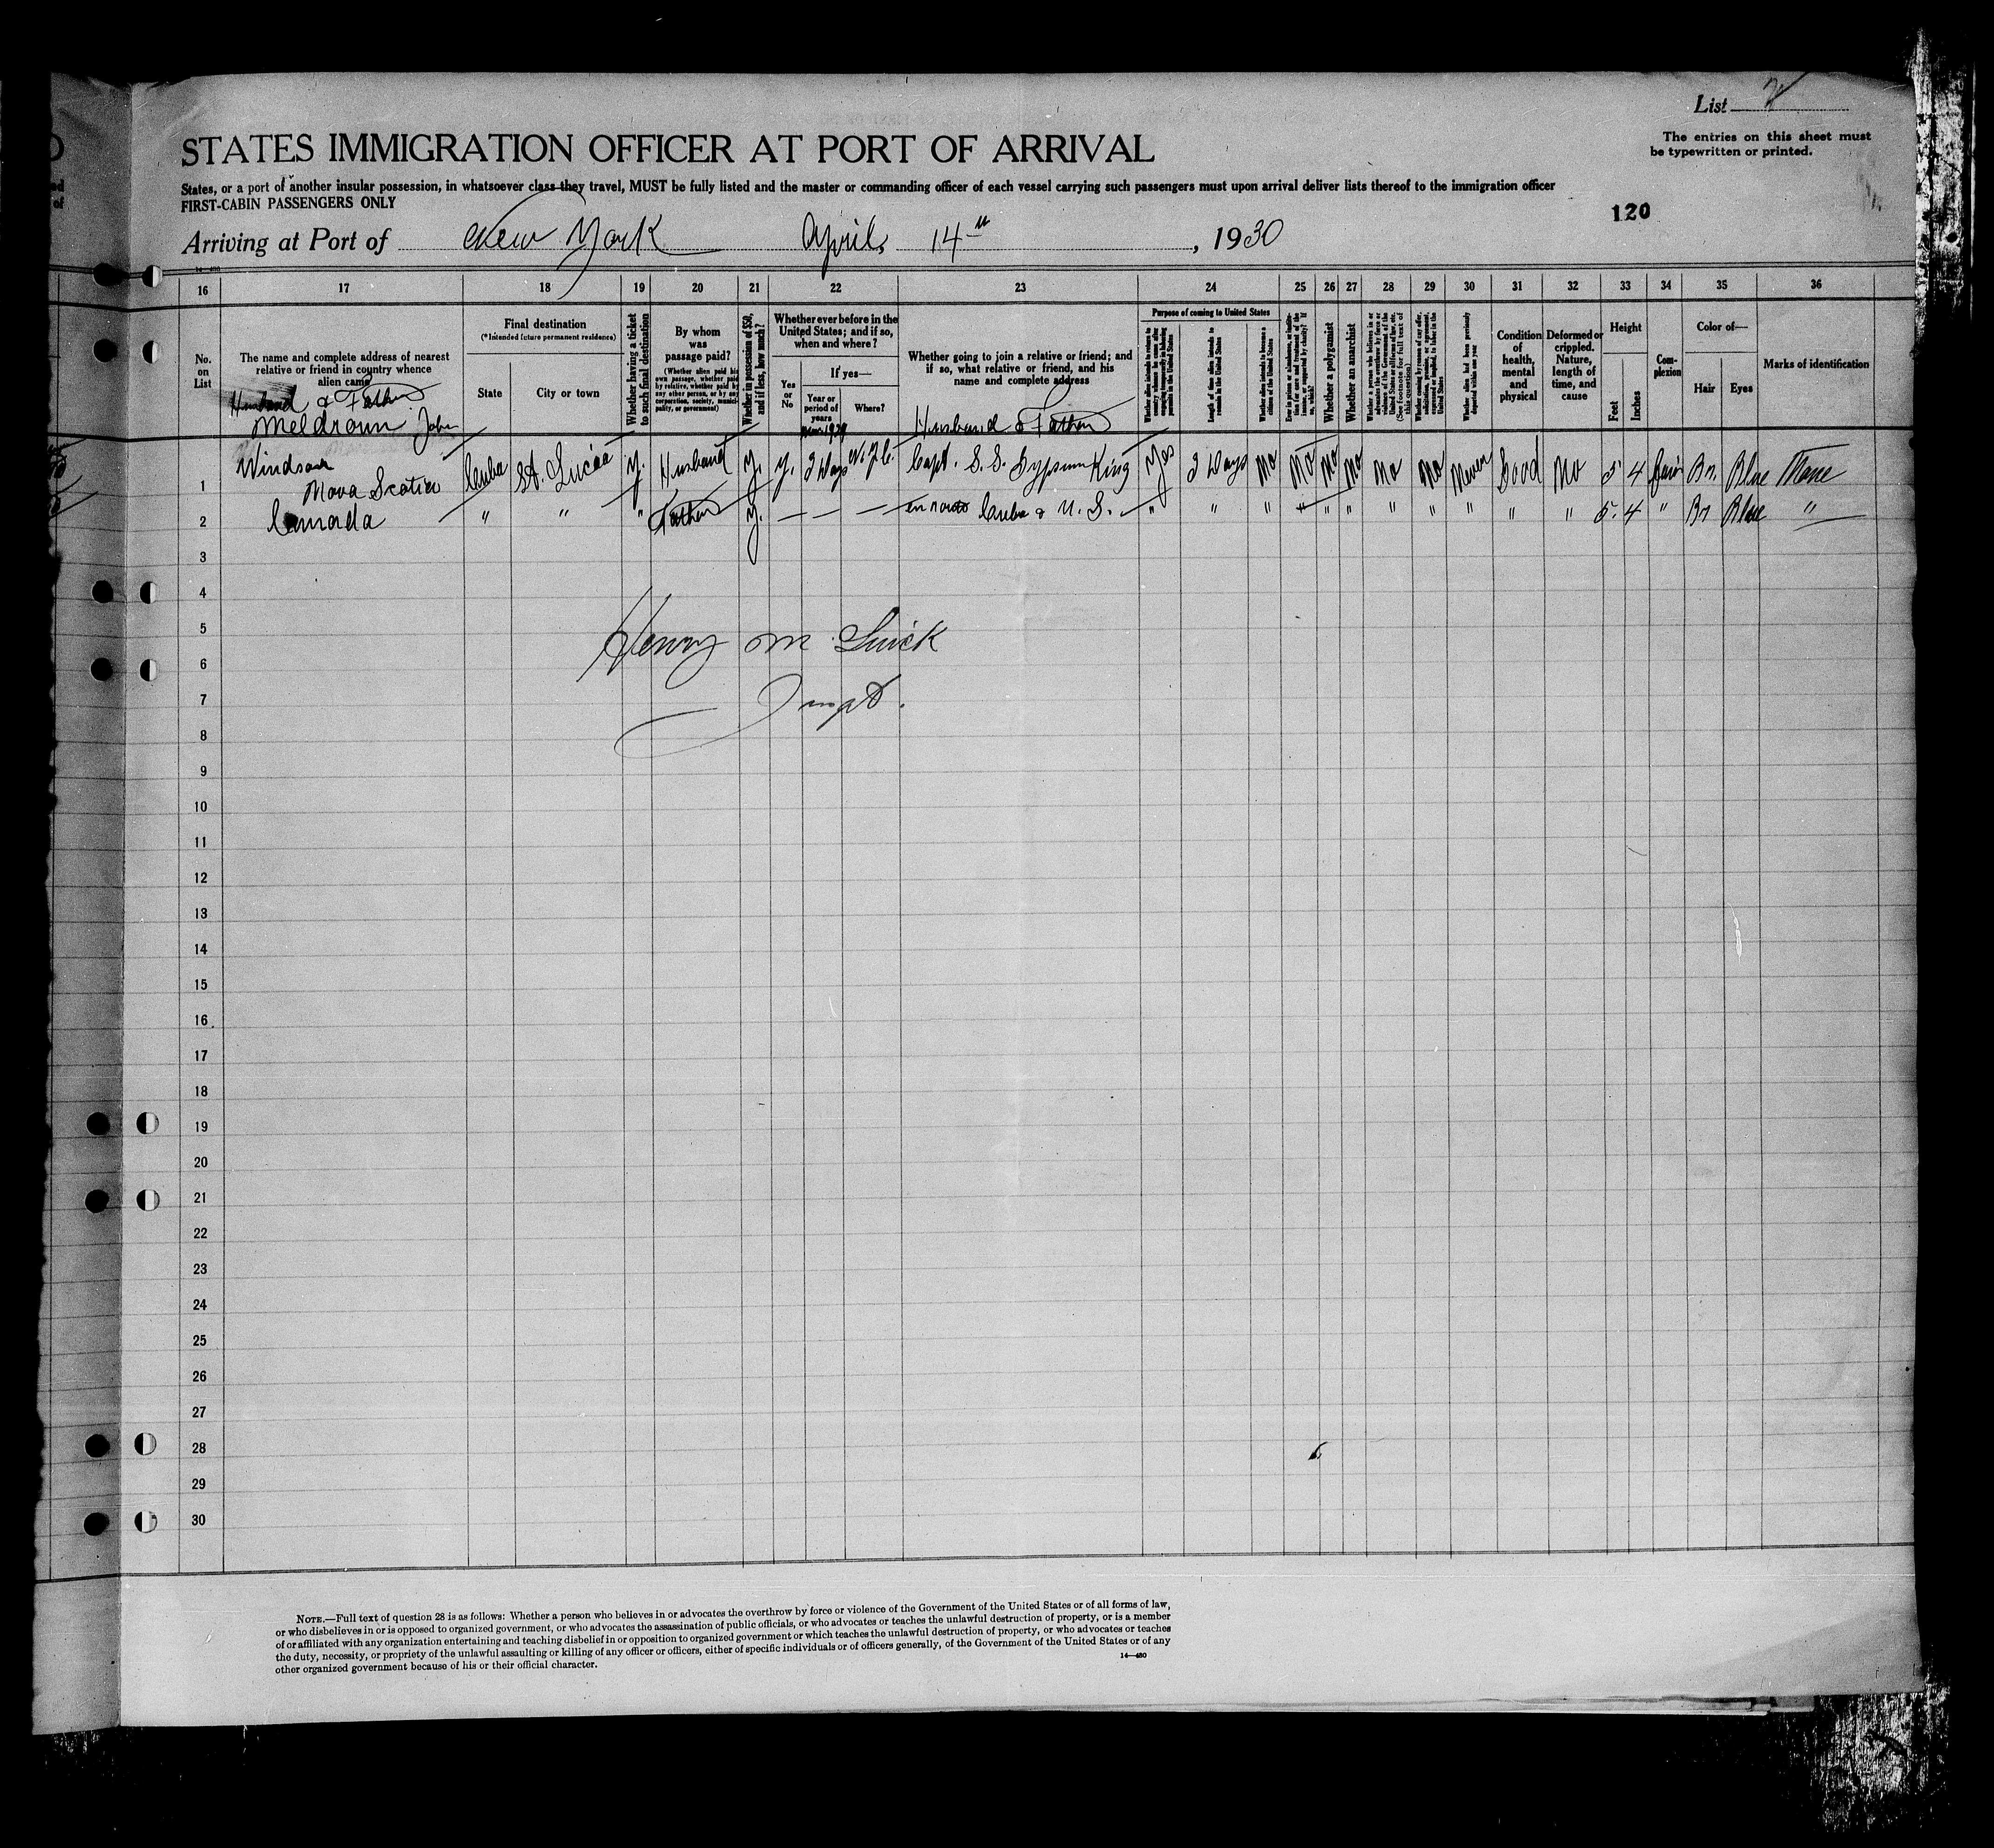 List 2
STATES IMMIGRATION OFFICER AT PORT OF ARRIVAL
The entries on this sheet must
be typewritten or printed.
States, or a port of another insular possession, in whatsoever class they travel, MUST be fully listed and the master or commanding officer of each vessel carrying such passengers must upon arrival deliver lists thereof to the immigration officer
FIRST-CABIN PASSENGERS ONLY
120
Arriving at Port of New York April 14th, 1930
16 17 18 19 20 21 22 23 24 25 26 27 28 29 30 31 32 33 34 35 36
No. on List
The name and complete address of nearest relative or friend in country whence alien came
Final destination
(*Intended future permanent residence)
State
City or town
Whether having a ticket to such final destination
By whom was passage paid?
(Whether alien paid his own passage, whether paid by relative, whether paid by any other person, or by any corporation, society, municipality, or government)
Whether in possession of $50, and if less, how much?
Whether ever before in the United States; and if so, when and where?
Yes or No
If yes—
Year or period of years
Where?
Whether going to join a relative or friend; and if so, what relative or friend, and his name and complete address
Purpose of coming to United States
Length of time alien intends to remain in the United States
Whether alien intends to become a citizen of the United States
Whether a polygamist
Whether an anarchist
Whether alien had been previously deported within one year
Condition of health, mental and physical
Deformed or crippled. Nature, length of time, and cause
Height
Feet
Inches
Complexion
Color of—
Hair
Eyes
Marks of identification
Husband & Father
Meldrum John
Husband & Father
1 Windsor Nova Scotia Cuba St. Lucia Y. Husband Y. Y. 2 Days Capt. S.S. Gypsum King Yes 2 Days No No No No No No Never Good No 5 4 Fair Br. Blue None
2 Canada " " " Father Y. — — — en route Cuba & U.S. " " " " " " " " " " " 5 4 " Br Blue "
3
4
5
Henry M
6
7
Inspt.
8
9
10
11
12
13
14
15
16
17
18
19
20
21
22
23
24
25
26
27
28
29
30
NOTE.—Full text of question 28 is as follows: Whether a person who believes in or advocates the overthrow by force or violence of the Government of the United States or of all forms of law,
or who disbelieves in or is opposed to organized government, or who advocates the assassination of public officials, or who advocates or teaches the unlawful destruction of property, or is a member
of or affiliated with any organization entertaining and teaching disbelief in or opposition to organized government or which teaches the unlawful destruction of property, or who advocates or teaches
the duty, necessity, or propriety of the unlawful assaulting or killing of any officer or officers, either of specific individuals or of officers generally, of the Government of the United States or of any
other organized government because of his or their official character.
14—480